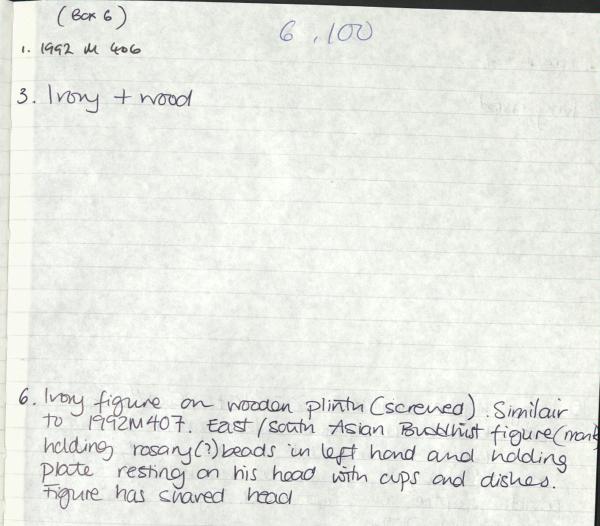 (Box 6)
6.100
1. 1992 M 406
3. Ivory + wood
6. Ivory figure on wooden plinth (screwed). Similair
to 1992M407. East/South Asian Buddhist figure (monk)
holding rosary(?) beads in left hand and holding
plate resting on his head with cups and dishes.
Figure has shaved head